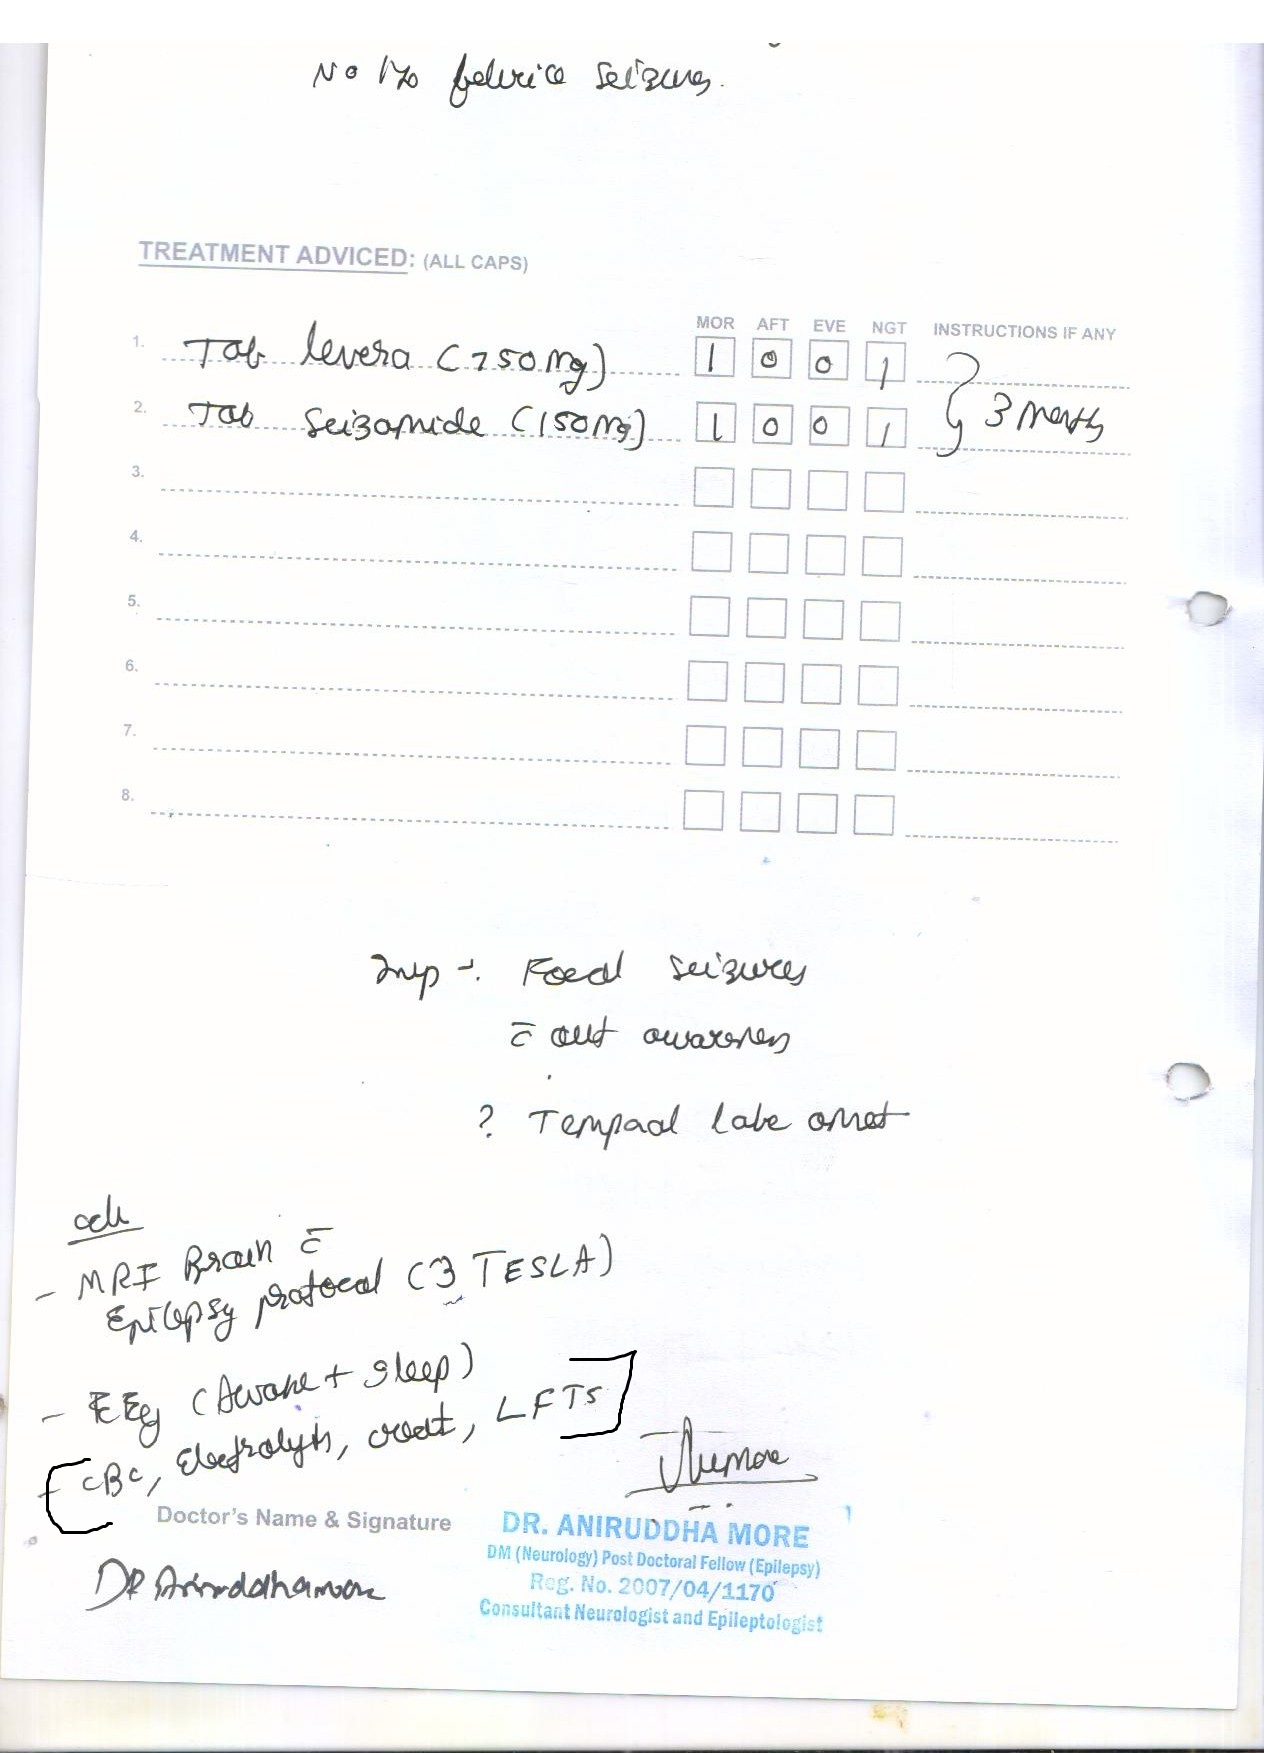 No H/o febrile seizures.
TREATMENT ADVICED: (ALL CAPS)
MOR AFT EVE NGT INSTRUCTIONS IF ANY
1. Tab levera (750mg) 1 0 0 1
2. Tab Seizamide (150mg) 1 0 0 1 } 3 months
3.
4.
5.
6.
7.
8.
Imp -: Focal seizures
c̄ out awareness
? Temporal lobe onset
adv
- MRI Brain c̄
Epilepsy protocol (3 TESLA)
- EEG (Awake + sleep)
- [CBC, Electrolyts, creat, LFTS]
Doctor's Name & Signature
DR. ANIRUDDHA MORE
DM (Neurology) Post Doctoral Fellow (Epilepsy)
Reg. No. 2007/04/1170
Consultant Neurologist and Epileptologist
Dr Aniruddha more